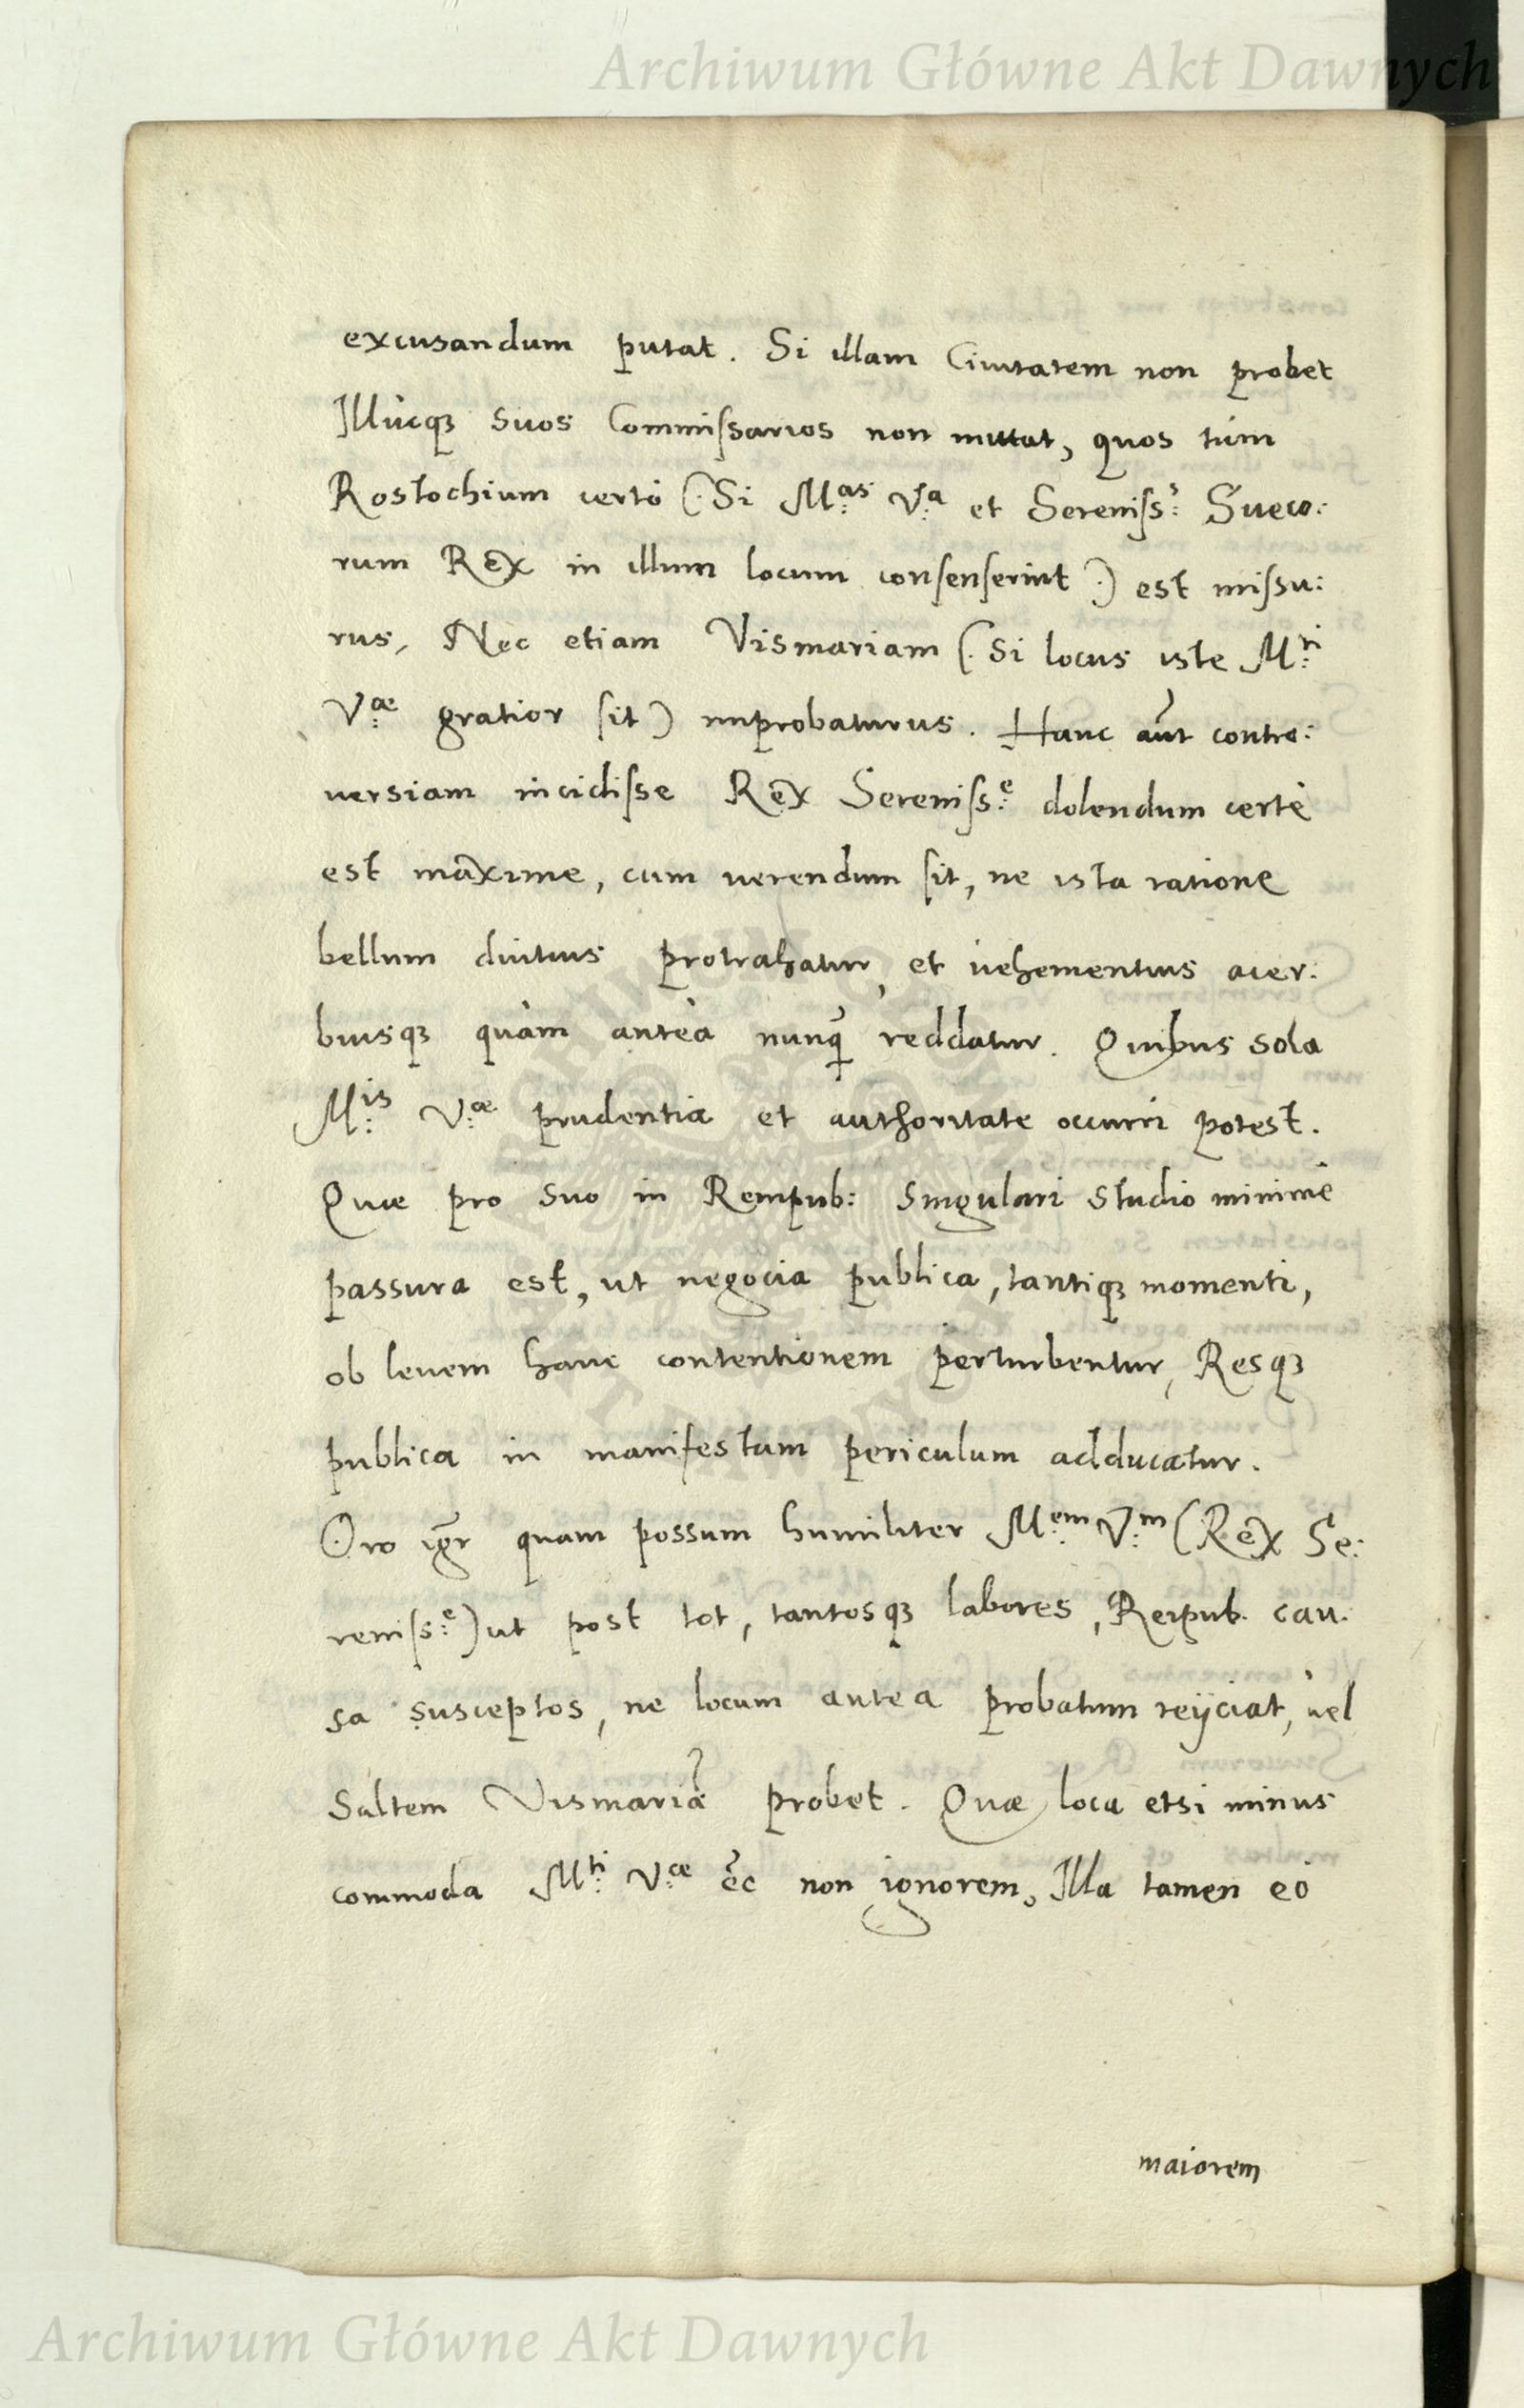 Archiwum Główne Akt Dawnych
excusandum putat. Si illam Ciuitatem non probet
Illucqȝ suos Commissarios non mittat, quos tùm
Rostochium certò (Si M:as V:a et Sereniss:s Sueco:
rum Rex in illum locum consenserint) est missu:
rus, Nec etiam Vismariam (Si locus iste M:ti
V:æ gratior sit) improbaturus. Hanc aut̃ contro:
uersiam incidisse Rex Sereniss:e dolendum certè
est maxime, cum uerendum sit, ne ista ratione
bellum diutius protrahatur, et uehementius acer:
biusqȝ quàm anteà nunq̃ reddatur. Quibus sola
M:is V:æ prudentia et authoritate occurri potest.
Quæ pro suo in Rempub: singulari studio minimè
passura est, ut negocia publica, tantiqȝ momenti,
ob leuem hanc contentionem perturbentur, Resqȝ
publica in manifestum periculum adducatur.
Oro igr̃ quam possum humiliter M:em V:m (Rex Se:
reniss:e) ut post tot, tantosqȝ labores, Reipub. cau:
sa susceptos, ne locum antea probatum reijciat, uel
Saltem Vismariã probet. Quæ loca etsi minus
commoda M:ti V:æ ẽẽ non ignorem, Illa tamen eò
maiorem
Archiwum Główne Akt Dawnych